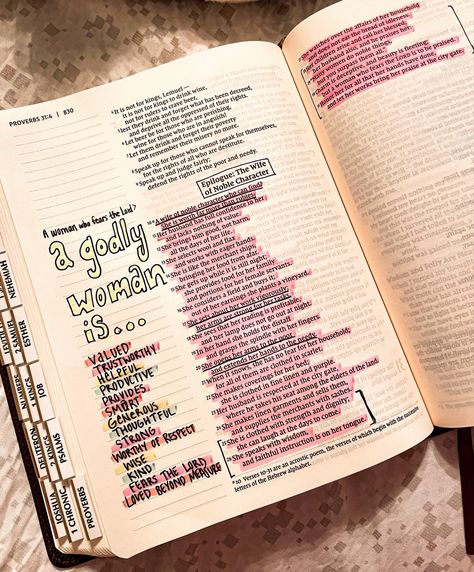 PROVERBS 31:4 | 830
4 It is not for kings, Lemuel—
it is not for kings to drink wine,
not for rulers to crave beer,
5 lest they drink and forget what has been decreed,
and deprive all the oppressed of their rights.
6 Let beer be for those who are perishing,
wine for those who are in anguish!
7 Let them drink and forget their poverty
and remember their misery no more.
8 Speak up for those who cannot speak for themselves,
for the rights of all who are destitute.
9 Speak up and judge fairly;
defend the rights of the poor and needy.
Epilogue: The Wife
of Noble Character
10 A wife of noble character who can find?
She is worth far more than rubies.
11 Her husband has full confidence in her
and lacks nothing of value.
12 She brings him good, not harm,
all the days of her life.
13 She selects wool and flax
and works with eager hands.
14 She is like the merchant ships,
bringing her food from afar.
15 She gets up while it is still night;
she provides food for her family
and portions for her female servants.
16 She considers a field and buys it;
out of her earnings she plants a vineyard.
17 She sets about her work vigorously;
her arms are strong for her tasks.
18 She sees that her trading is profitable,
and her lamp does not go out at night.
19 In her hand she holds the distaff
and grasps the spindle with her fingers.
20 She opens her arms to the poor
and extends her hands to the needy.
21 When it snows, she has no fear for her household;
for all of them are clothed in scarlet.
22 She makes coverings for her bed;
she is clothed in fine linen and purple.
23 Her husband is respected at the city gate,
where he takes his seat among the elders of the land.
24 She makes linen garments and sells them,
and supplies the merchants with sashes.
25 She is clothed with strength and dignity;
she can laugh at the days to come.
26 She speaks with wisdom,
and faithful instruction is on her tongue.
a 10 Verses 10-31 are an acrostic poem, the verses of which begin with the successive
letters of the Hebrew alphabet.
A woman who fears the Lord?
a godly
woman
is...
VALUED
TRUSTWORTHY
HELPFUL
PRODUCTIVE
PROVIDES
SMART
GENEROUS
THOUGHTFUL
STRONG
WORTHY OF RESPECT
WISE
KIND
FEARS THE LORD
LOVED BEYOND MEASURE
NEHEMIAH
ESTHER
2 SAMUEL
JOB
1 KINGS
NUMBERS
PSALMS
2 KINGS
DEUTERON
PROVERBS
1 CHRONIC
JOSHUA
27 She watches over the affairs of her household
and does not eat the bread of idleness.
28 Her children arise and call her blessed;
her husband also, and he praises her:
29 "Many women do noble things,
but you surpass them all."
30 Charm is deceptive, and beauty is fleeting;
but a woman who fears the LORD is to be praised.
31 Honor her for all that her hands have done,
and let her works bring her praise at the city gate.